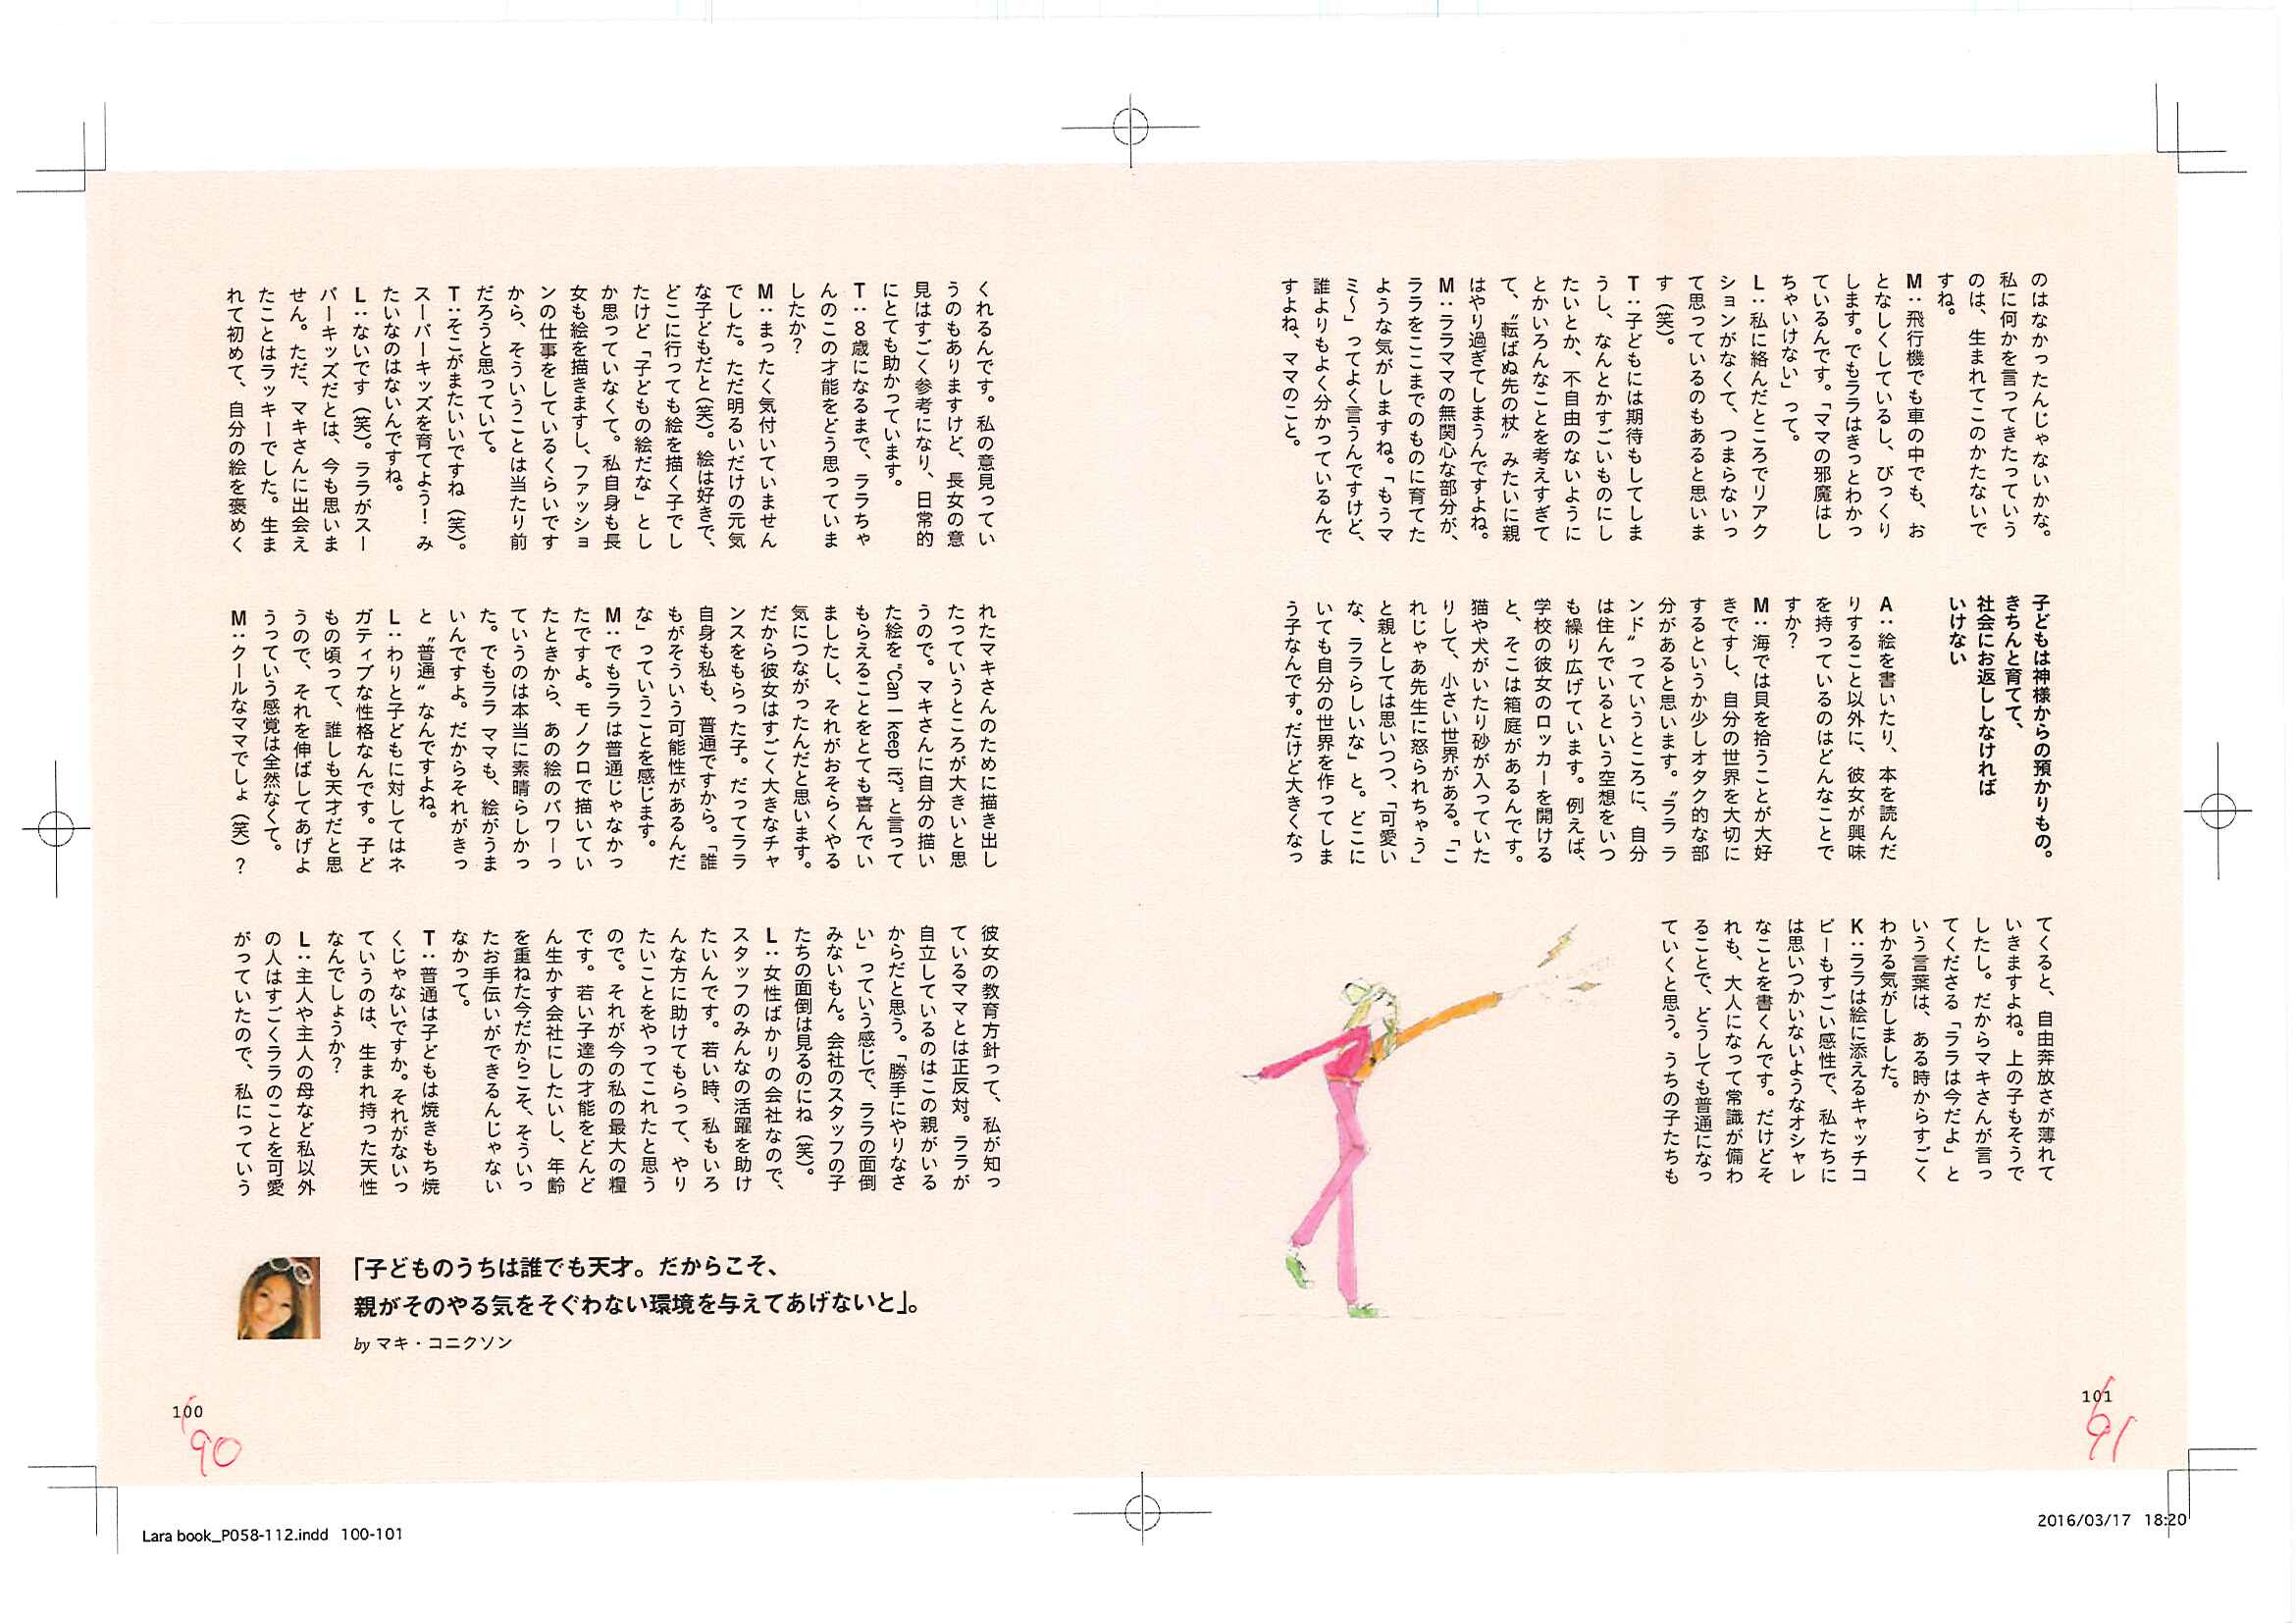 くれるんです。私の意見ってい
うのもありますけど、長女の意
見はすごく参考になり、日常的
にとても助かっています。
T：8歳になるまで、ララちゃ
んのこの才能をどう思っていま
したか？
M：まったく気付いていません
でした。ただ明るいだけの元気
な子どもだと(笑)。絵は好きで、
どこに行っても絵を描く子でし
たけど「子どもの絵だな」とし
か思っていなくて。私自身も長
女も絵を描きますし、ファッショ
ンの仕事をしているくらいです
から、そういうことは当たり前
だろうと思っていて。
T：そこがまたいいですね（笑）。
スーパーキッズを育てよう！み
たいなのはないんですね。
L：ないです（笑）。ララがスー
パーキッズだとは、今も思いま
せん。ただ、マキさんに出会え
たことはラッキーでした。生ま
れて初めて、自分の絵を褒めく
れたマキさんのために描き出し
たっていうところが大きいと思
うので。マキさんに自分の描い
た絵を“Can I keep it?”と言って
もらえることをとても喜んでい
ましたし、それがおそらくやる
気につながったんだと思います。
だから彼女はすごく大きなチャ
ンスをもらった子。だってララ
自身も私も、普通ですから。「誰
もがそういう可能性があるんだ
な」っていうことを感じます。
M：でもララは普通じゃなかっ
たですよ。モノクロで描いてい
たときから、あの絵のパワーっ
ていうのは本当に素晴らしかっ
た。でもララ ママも、絵がうま
いんですよ。だからそれがきっ
と〝普通〟なんですよね。
L：わりと子どもに対してはネ
ガティブな性格なんです。子ど
もの頃って、誰しも天才だと思
うので、それを伸ばしてあげよ
うっていう感覚は全然なくて。
M：クールなママでしょ（笑）？
彼女の教育方針って、私が知っ
ているママとは正反対。ララが
自立しているのはこの親がいる
からだと思う。「勝手にやりなさ
い」っていう感じで、ララの面倒
みないもん。会社のスタッフの子
たちの面倒は見るのにね（笑）。
L：女性ばかりの会社なので、
スタッフのみんなの活躍を助け
たいんです。若い時、私もいろ
んな方に助けてもらって、やり
たいことをやってこれたと思う
ので。それが今の私の最大の糧
です。若い子達の才能をどんど
ん生かす会社にしたいし、年齢
を重ねた今だからこそ、そういっ
たお手伝いができるんじゃない
なかって。
T：普通は子どもは焼きもち焼
くじゃないですか。それがないっ
ていうのは、生まれ持った天性
なんでしょうか？
L：主人や主人の母など私以外
の人はすごくララのことを可愛
がっていたので、私にっていう
「子どものうちは誰でも天才。だからこそ、
親がそのやる気をそぐわない環境を与えてあげないと」。
by マキ・コニクソン
100
90
のはなかったんじゃないかな。
私に何かを言ってきたっていう
のは、生まれてこのかたないで
すね。
M：飛行機でも車の中でも、お
となしくしているし、びっくり
します。でもララはきっとわかっ
ているんです。「ママの邪魔はし
ちゃいけない」って。
L：私に絡んだところでリアク
ションがなくて、つまらないっ
て思っているのもあると思いま
す（笑）。
T：子どもには期待もしてしま
うし、なんとかすごいものにし
たいとか、不自由のないように
とかいろんなことを考えすぎて
て、〝転ばぬ先の杖〟みたいに親
はやり過ぎてしまうんですよね。
M：ララママの無関心な部分が、
ララをここまでのものに育てた
ような気がしますね。「もうマ
ミ～」ってよく言うんですけど、
誰よりもよく分かっているんで
すよね、ママのこと。
子どもは神様からの預かりもの。
きちんと育てて、
社会にお返ししなければ
いけない
A：絵を書いたり、本を読んだ
りすること以外に、彼女が興味
を持っているのはどんなことで
すか？
M：海では貝を拾うことが大好
きですし、自分の世界を大切に
するというか少しオタク的な部
分があると思います。〝ララ ラ
ンド〟っていうところに、自分
は住んでいるという空想をいつ
も繰り広げています。例えば、
学校の彼女のロッカーを開ける
と、そこは箱庭があるんです。
猫や犬がいたり砂が入っていた
りして、小さい世界がある。「こ
れじゃあ先生に怒られちゃう」
と親としては思いつつ、「可愛い
な、ララらしいな」と。どこに
いても自分の世界を作ってしま
う子なんです。だけど大きくなっ
てくると、自由奔放さが薄れて
いきますよね。上の子もそうで
したし。だからマキさんが言っ
てくださる「ララは今だよ」と
いう言葉は、ある時からすごく
わかる気がしました。
K：ララは絵に添えるキャッチコ
ピーもすごい感性で、私たちに
は思いつかいないようなオシャレ
なことを書くんです。だけどそ
れも、大人になって常識が備わ
ることで、どうしても普通になっ
ていくと思う。うちの子たちも
101
91
Lara book_P058-112.indd 100-101
2016/03/17 18:20